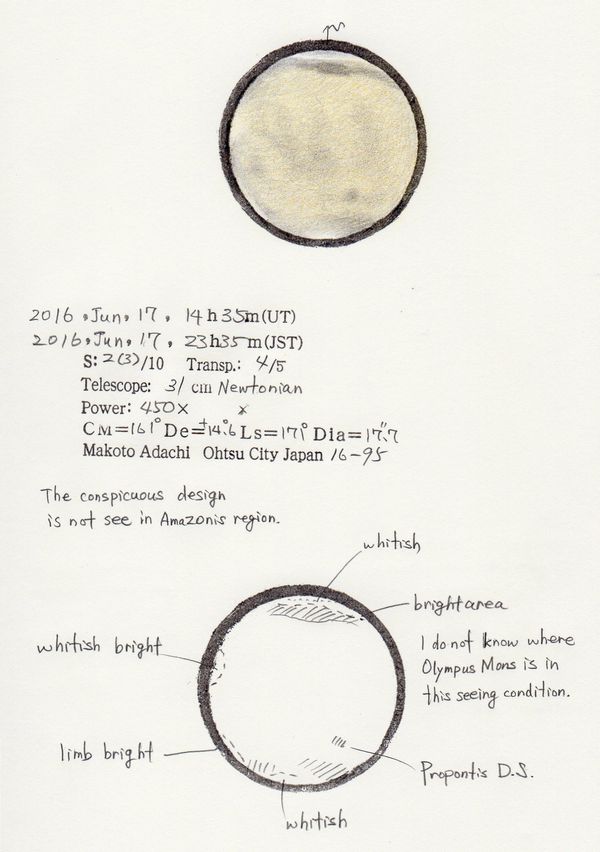 2016, Jun, 17, 14h35m(UT)
2016, Jun, 17, 23h35m(JST)
S: 2(3)/10 Transp.: 4/5
Telescope: 31 cm Newtonian
Power: 450×
CM=161° De=+14.°6 Ls=171° Dia=17."7
Makoto Adachi Ohtsu City Japan 16-95
The conspicuous design
is not see in Amazonis region.
whitish
bright area
whitish bright
I do not know where
Olympus Mons is in
this seeing condition.
limb bright
Propontis D.S.
whitish